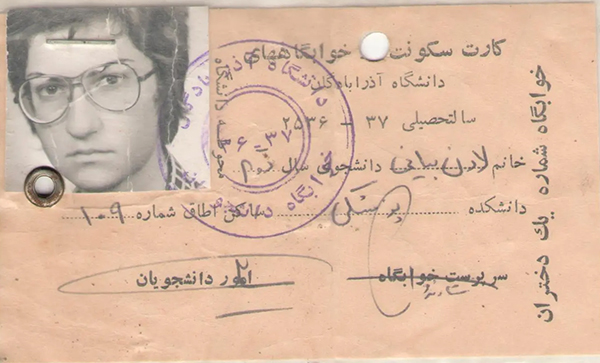 کارت سکونت خوابگاههای
دانشگاه آذرابادگان
سالتحصیلی ۳۷ - ۲۵۳۶
خانم لادن بیانی دانشجوی سال دوم
دانشکده پزشکی ساکن اطاق شماره ۱۰۹
سرپرست خوابگاه امور دانشجویان
خوابگاه شماره یك دختران
محوطه دانشگاه
دانشگاه آذرابادگان
۳۶-۳۷
خوابگاه